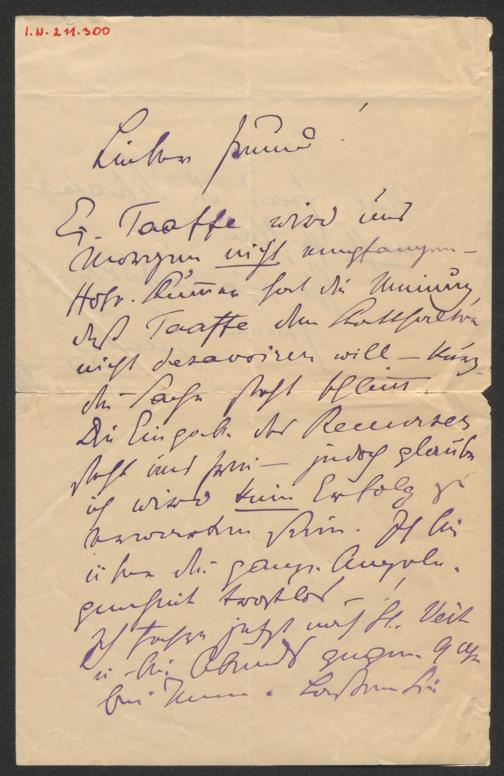 I.N. 211.300
Lieber Freund!
Ex. Taaffe wird uns
Morgen nicht empfangen –
Hofr. hat die Meinung
daß Taaffe den Statthalter
nicht desavoiren will – kurz
die Sache steht schlimm.
Die Eingabe des Recurses
steht uns frei – jedoch glaube
ich wird kein Erfolg zu
erwarten sein. Ich bin
über die ganze Angele-
genheit trostlos!
Ich fahre jetzt nach St. Veit
u. bin Abends gegen 9 Uhr
bei Ihnen. Lassen Sie